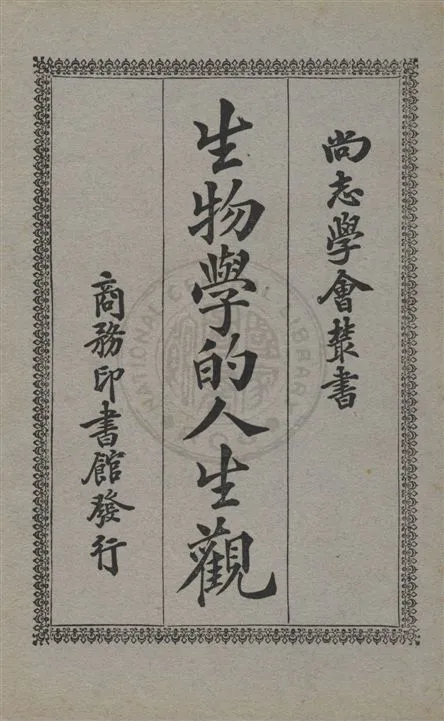 尚志學會叢書
生物學的人生觀
商務印書館發行